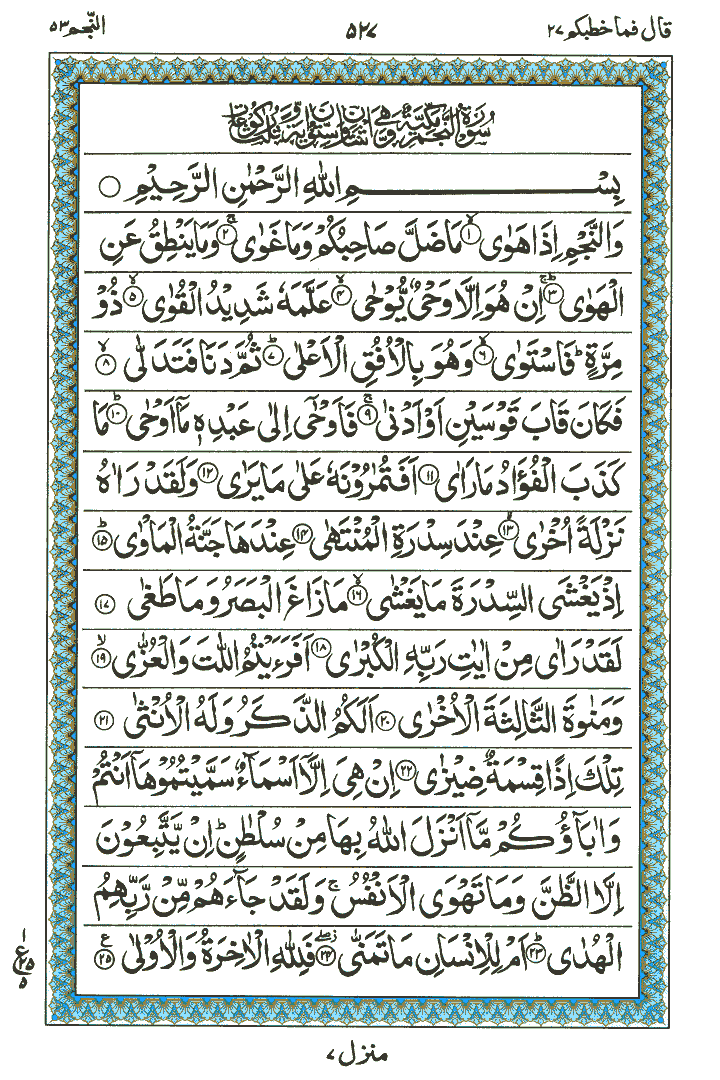 قال فما خطبكم ٢٧ ٥٢٧ النّجم ٥٣
سُوْرَةُ النَّجْمِ مَكِّيَّةٌ وَّهِيَ اثْنَتَانِ وَسِتُّوْنَ اٰيَةً وَّثَلٰثُ رُكُوْعَاتٍ
بِسْمِ اللهِ الرَّحْمٰنِ الرَّحِيْمِ ۝
وَالنَّجْمِ اِذَا هَوٰى ۙ﴿١﴾ مَا ضَلَّ صَاحِبُكُمْ وَمَا غَوٰى ۚ﴿٢﴾ وَمَا يَنْطِقُ عَنِ
الْهَوٰى ؕ﴿٣﴾ اِنْ هُوَ اِلَّا وَحْيٌ يُّوْحٰى ۙ﴿٤﴾ عَلَّمَهٗ شَدِيْدُ الْقُوٰى ۙ﴿٥﴾ ذُوْ
مِرَّةٍ ؕ فَاسْتَوٰى ۙ﴿٦﴾ وَهُوَ بِالْاُفُقِ الْاَعْلٰى ؕ﴿٧﴾ ثُمَّ دَنَا فَتَدَلّٰى ۙ﴿٨﴾
فَكَانَ قَابَ قَوْسَيْنِ اَوْ اَدْنٰى ۚ﴿٩﴾ فَاَوْحٰۤى اِلٰى عَبْدِهٖ مَاۤ اَوْحٰى ؕ﴿١٠﴾ مَا
كَذَبَ الْفُؤَادُ مَا رَاٰى ﴿١١﴾ اَفَتُمٰرُوْنَهٗ عَلٰى مَا يَرٰى ﴿١٢﴾ وَلَقَدْ رَاٰهُ
نَزْلَةً اُخْرٰى ۙ﴿١٣﴾ عِنْدَ سِدْرَةِ الْمُنْتَهٰى ﴿١٤﴾ عِنْدَهَا جَنَّةُ الْمَاْوٰى ؕ﴿١٥﴾
اِذْ يَغْشَى السِّدْرَةَ مَا يَغْشٰى ۙ﴿١٦﴾ مَا زَاغَ الْبَصَرُ وَمَا طَغٰى ﴿١٧﴾
لَقَدْ رَاٰى مِنْ اٰيٰتِ رَبِّهِ الْكُبْرٰى ﴿١٨﴾ اَفَرَءَيْتُمُ اللّٰتَ وَالْعُزّٰى ۙ﴿١٩﴾
وَمَنٰوةَ الثَّالِثَةَ الْاُخْرٰى ﴿٢٠﴾ اَلَكُمُ الذَّكَرُ وَلَهُ الْاُنْثٰى ﴿٢١﴾
تِلْكَ اِذًا قِسْمَةٌ ضِيْزٰى ﴿٢٢﴾ اِنْ هِيَ اِلَّاۤ اَسْمَآءٌ سَمَّيْتُمُوْهَاۤ اَنْتُمْ
وَاٰبَآؤُكُمْ مَّاۤ اَنْزَلَ اللهُ بِهَا مِنْ سُلْطٰنٍ ؕ اِنْ يَّتَّبِعُوْنَ
اِلَّا الظَّنَّ وَمَا تَهْوَى الْاَنْفُسُ ۚ وَلَقَدْ جَآءَهُمْ مِّنْ رَّبِّهِمُ
الْهُدٰى ؕ﴿٢٣﴾ اَمْ لِلْاِنْسَانِ مَا تَمَنّٰى ۖ﴿٢٤﴾ فَلِلّٰهِ الْاٰخِرَةُ وَالْاُوْلٰى ﴿٢٥﴾ ع
١
ع ٢٥
٥
منزل ٧